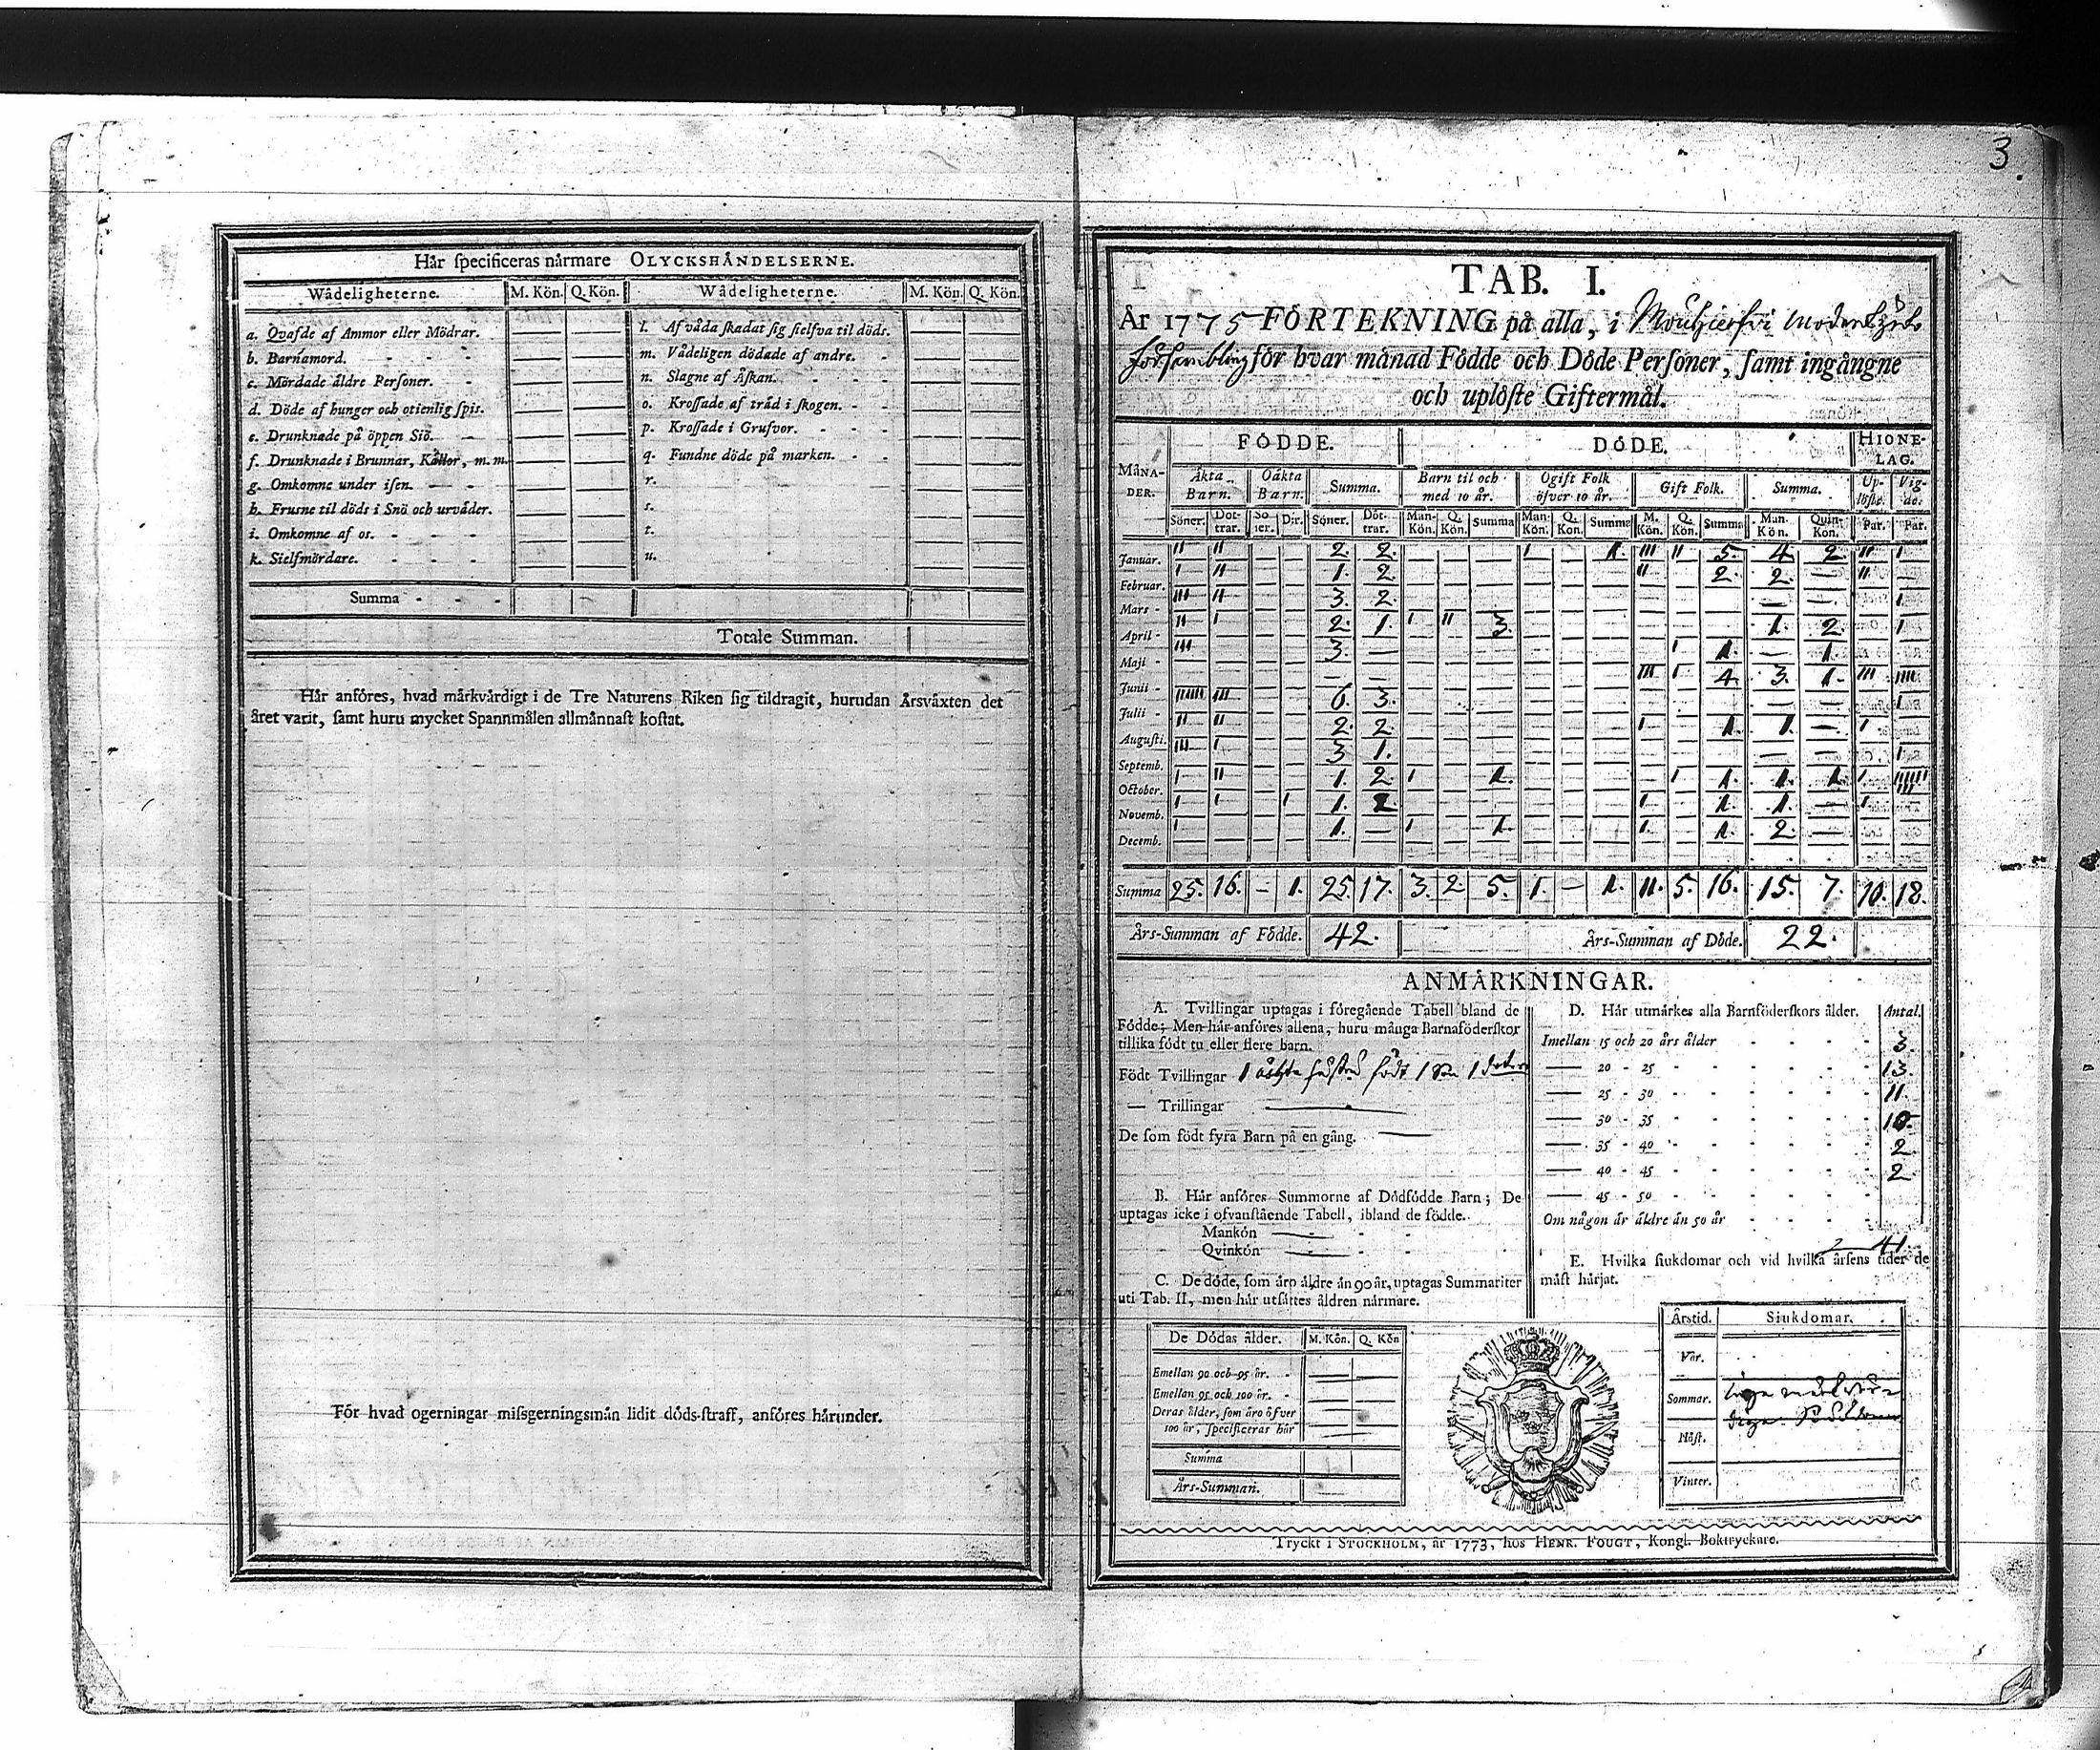 3.
Hår specificeras nårmare OLYCKSHÅNDELSERNE.
Wådeligheterne. M. Kön. Q. Kön. Wådeligheterne. M. Kön. Q. Kön.
a. Qvafde af Ammor eller Mödrar. — — l. Af våda skadat sig sielfva til döds. — —
b. Barnamord. — — m. Vådeligen dödade af andre. — —
c. Mördade äldre Personer. — — n. Slagne af Åskan. — —
d. Döde af hunger och otienlig spis. — — o. Krossade af träd i skogen. — —
e. Drunknade på öppen Siö. — — p. Krossade i Grufvor. — —
f. Drunknade i Brunnar, Kållor, m. m. — — q. Fundne döde på marken. — —
g. Omkomne under isen. — — r. — —
h. Frusne til döds i Snö och urväder. — — s. — —
i. Omkomne af os. — — t. — —
k. Sielfmördare. — — u. — —
Summa
Totale Summan.
Hår anföres, hvad mårkvårdigt i de Tre Naturens Riken sig tildragit, hurudan Årsväxten det
året varit, samt huru mycket Spannmålen allmånnast kostat.
För hvad ogerningar missgerningsmån lidit döds-straff, anföres hårunder.
TAB. I.
År 1775 FÖRTEKNING på alla, i Mouhierfvi Moderkyrko
försambling för hvar månad Födde och Döde Personer, samt ingångne
och uplöste Giftermål.
FÖDDE. DÖDE. HIONE-
LAG.
MÅNA-
DER. Äkta Barn. Oäkta Barn. Summa. Barn til och med 10 år. Ogift Folk öfver 10 år. Gift Folk. Summa. Up-löste. Vig-de.
Söner. Döt-trar. Sö-ner. D:r. Söner. Döt-trar. Man-Kön. Q. Kön. Summa Man-Kön. Q. Kön. Summa M. Kön. Q. Kön. Summa Man-Kön. Quin-Kön. Par. Par.
Januar. 11 11 — — 2. 2. — — — 1 — 1. 111 11 5. 4 2. 11 1
Februar. 1 11 — — 1. 2 — — — — — — 11 — 2. 2. — 11 —
Mars 111 11 — — 3. 2. — — — — — — — — — — — — 1
April 11 1 — — 2. 1. 1 11 3. — — — — — — 1. 2. — 1
Maji 111 — — — 3. — — — — — — — — 1 1. — 1. — —
Junii — — — — — — — — — — — — 111 1 4 3. 1. 111 1111
Julii 111111 111 — — 6. 3. — — — — — — — — — — — — 1
Augusti. 11 11 — — 2. 2. — — — — — — 1 — 1. 1. — 1 —
Septemb. 111 1 — — 3 1. — — — — — — — — — — — — 1
October. 1 11 — — 1. 2 1 — 1. — — — — 1 1. 1. 1. 1.
Novemb. 1 1 — 1 1. 2 — — — — — — 1 — 1. 1. — 1 —
Decemb. 1 — — — 1. — 1 — 1. — — — 1. — 1. 2. — — —
Summa 25. 16. — 1. 25. 17. 3. 2 5. 1. — 1. 11. 5. 16. 15. 7. 10. 18.
Års-Summan af Födde. 42. Års-Summan af Döde. 22.
ANMÄRKNINGAR.
A. Tvillingar uptagas i föregående Tabell bland de
Födde; Men hår anföres allena, huru många Barnaföderskor
tillika födt tu eller flere barn.
Födt Tvillingar 1 äckta hustru födt 1 son 1 dotter
— Trillingar —
De som födt fyra Barn på en gång. —
B. Hår anföres Summorne af Dödfödde Barn; De
uptagas icke i ofvanstående Tabell, ibland de födde.
Mankön —
Qvinkön —
C. De döde, som åro åldre ån 90 år, uptagas Summariter
uti Tab. II, men hår utsåttes åldren nårmare.
De Dödas ålder. M. Kön. Q. Kön
Emellan 90 och 95 år. — —
Emellan 95 och 100 år. — —
Deras ålder, som åro öfver
100 år, specificeras hår
Summa
Års-Summan. —
D. Hår utmårkes alla Barnföderskors ålder. Antal.
Imellan 15 och 20 års ålder 3.
— 20 - 25 13.
— 25 - 30 11.
— 30 - 35 10.
— 35 - 40 2
— 40 - 45 2.
— 45 - 50
Om någon år åldre ån 50 år
41.
E. Hvilka siukdomar och vid hvilka årsens tider de
måst hårjat.
Årstid. Siukdomar.
Vår.
Sommar. inga
Höst.
Vinter.
Tryckt i STOCKHOLM, år 1773, hos HENR. FOUGT, Kongl. Boktryckare.